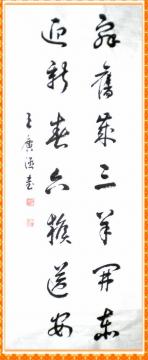 辞旧岁三羊开泰
迎新春六猴送安
王广德书